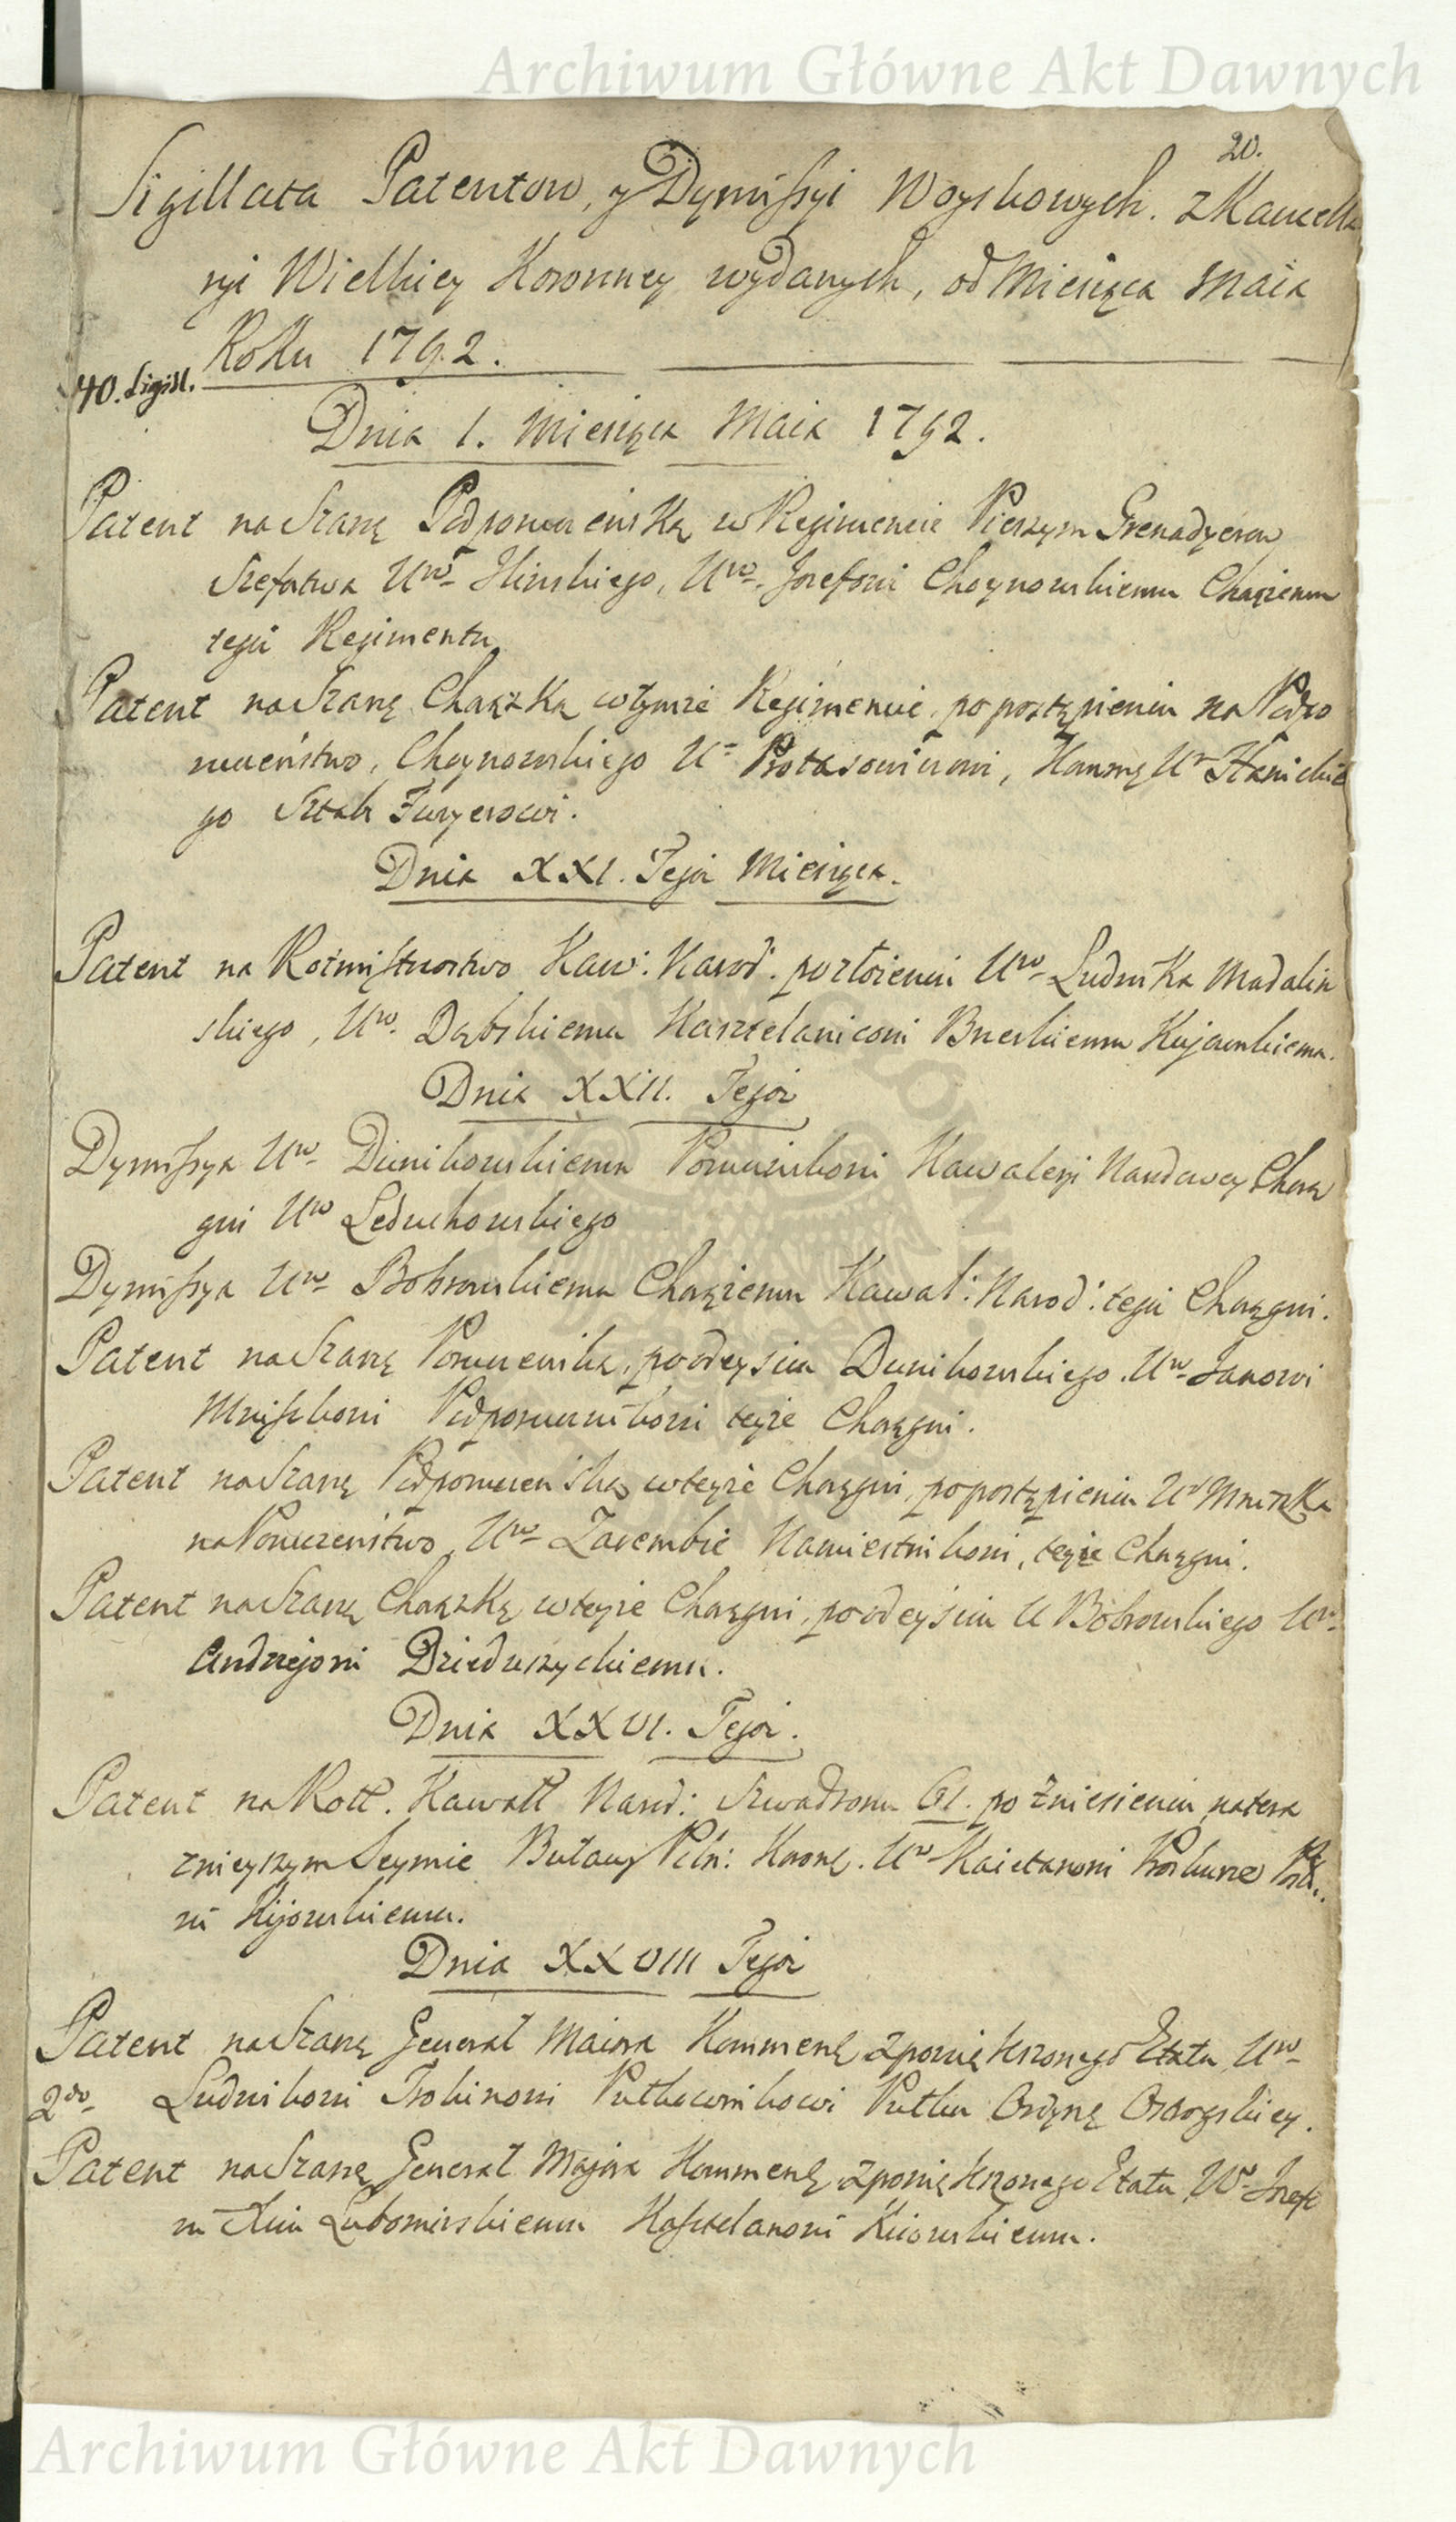 Archiwum Główne Akt Dawnych
20.
Sigillata Patentow, y Dymissyi Woyskowych. z Kancella
ryi Wielkiey Koronney wydanych, od Miesiąca Maia
Roku 1792.
40. Sigill.
Dnia 1. Miesiąca Maia 1792.
Patent na Szarżę Podporuczńską w Regimencie Pierszym Grenadyerow
Szefostwa Uro Ilińskiego, Uro Jozefowi Choynowskiemu Chorążemu
tegoż Regimentu
Patent na Szarżę Chorążką w tymże Regimencie, po postąpieniu na Podpo
ruczeństwo, Choynowskiego Ur Protasowiczowi,
go Sztabs Furyerowi.
Dnia XXI. Tegoż Miesiąca.
Patent na Rotmistrzostwo Kaw: Narod: po złożeniu Uro Ludwika Madaliń
skiego, Uro Dąbskiemu Kasztelanicowi Brzeskiemu Kujawskiemu.
Dnia XXII. Tegoż
Dymissya Uro Dunikowskiemu Porucznikowi Kawaleryi Narodowey Chorą
gwi Uro Leduchowskiego
Dymissya Uro Bobrowskiemu Chorążemu Kawal: Narod: teyż Chorągwi.
Patent na Szarżę Porucznika, po odeysciu Dunikowskiego. Uro Janowi
Mniszkowi Podporucznikowi teyże Chorągwi.
Patent na Szarżę Podporuczeńską w teyże Chorągwi, po postąpieniu Ur Mniszka
na Poruczeństwo, Uro Zarembie Namiestnikowi, teyże Chorągwi.
Patent na Szarżę Chorążką w teyże Chorągwi, po odeysciu U Bobrowskiego Uro
Andrzejowi Dzieduszyckiemu.
Dnia XXVI. Tegoż.
Patent na Rott. Kawall Narod: Szwadronu po zniesieniu na tera
znieyszym Seymie Buławy Poln: Koron. Uro Kaietanowi
Kijowskiemu.
Dnia XXVIII Tegoż
Patent na Szarżę Generał Maiora Kommend z powiększonego Etatu Uro
2do Ludwikowi Trokinowi Pułkownikowi Pułku Ordyn Ostrogskiey.
Patent na Szarżę Generał Majora Kommend z powiększonego Etatu Uro Jozefo
wi Xciu Lubomirskiemu Kasztelanowi Kijowskiemu.
Archiwum Główne Akt Dawnych